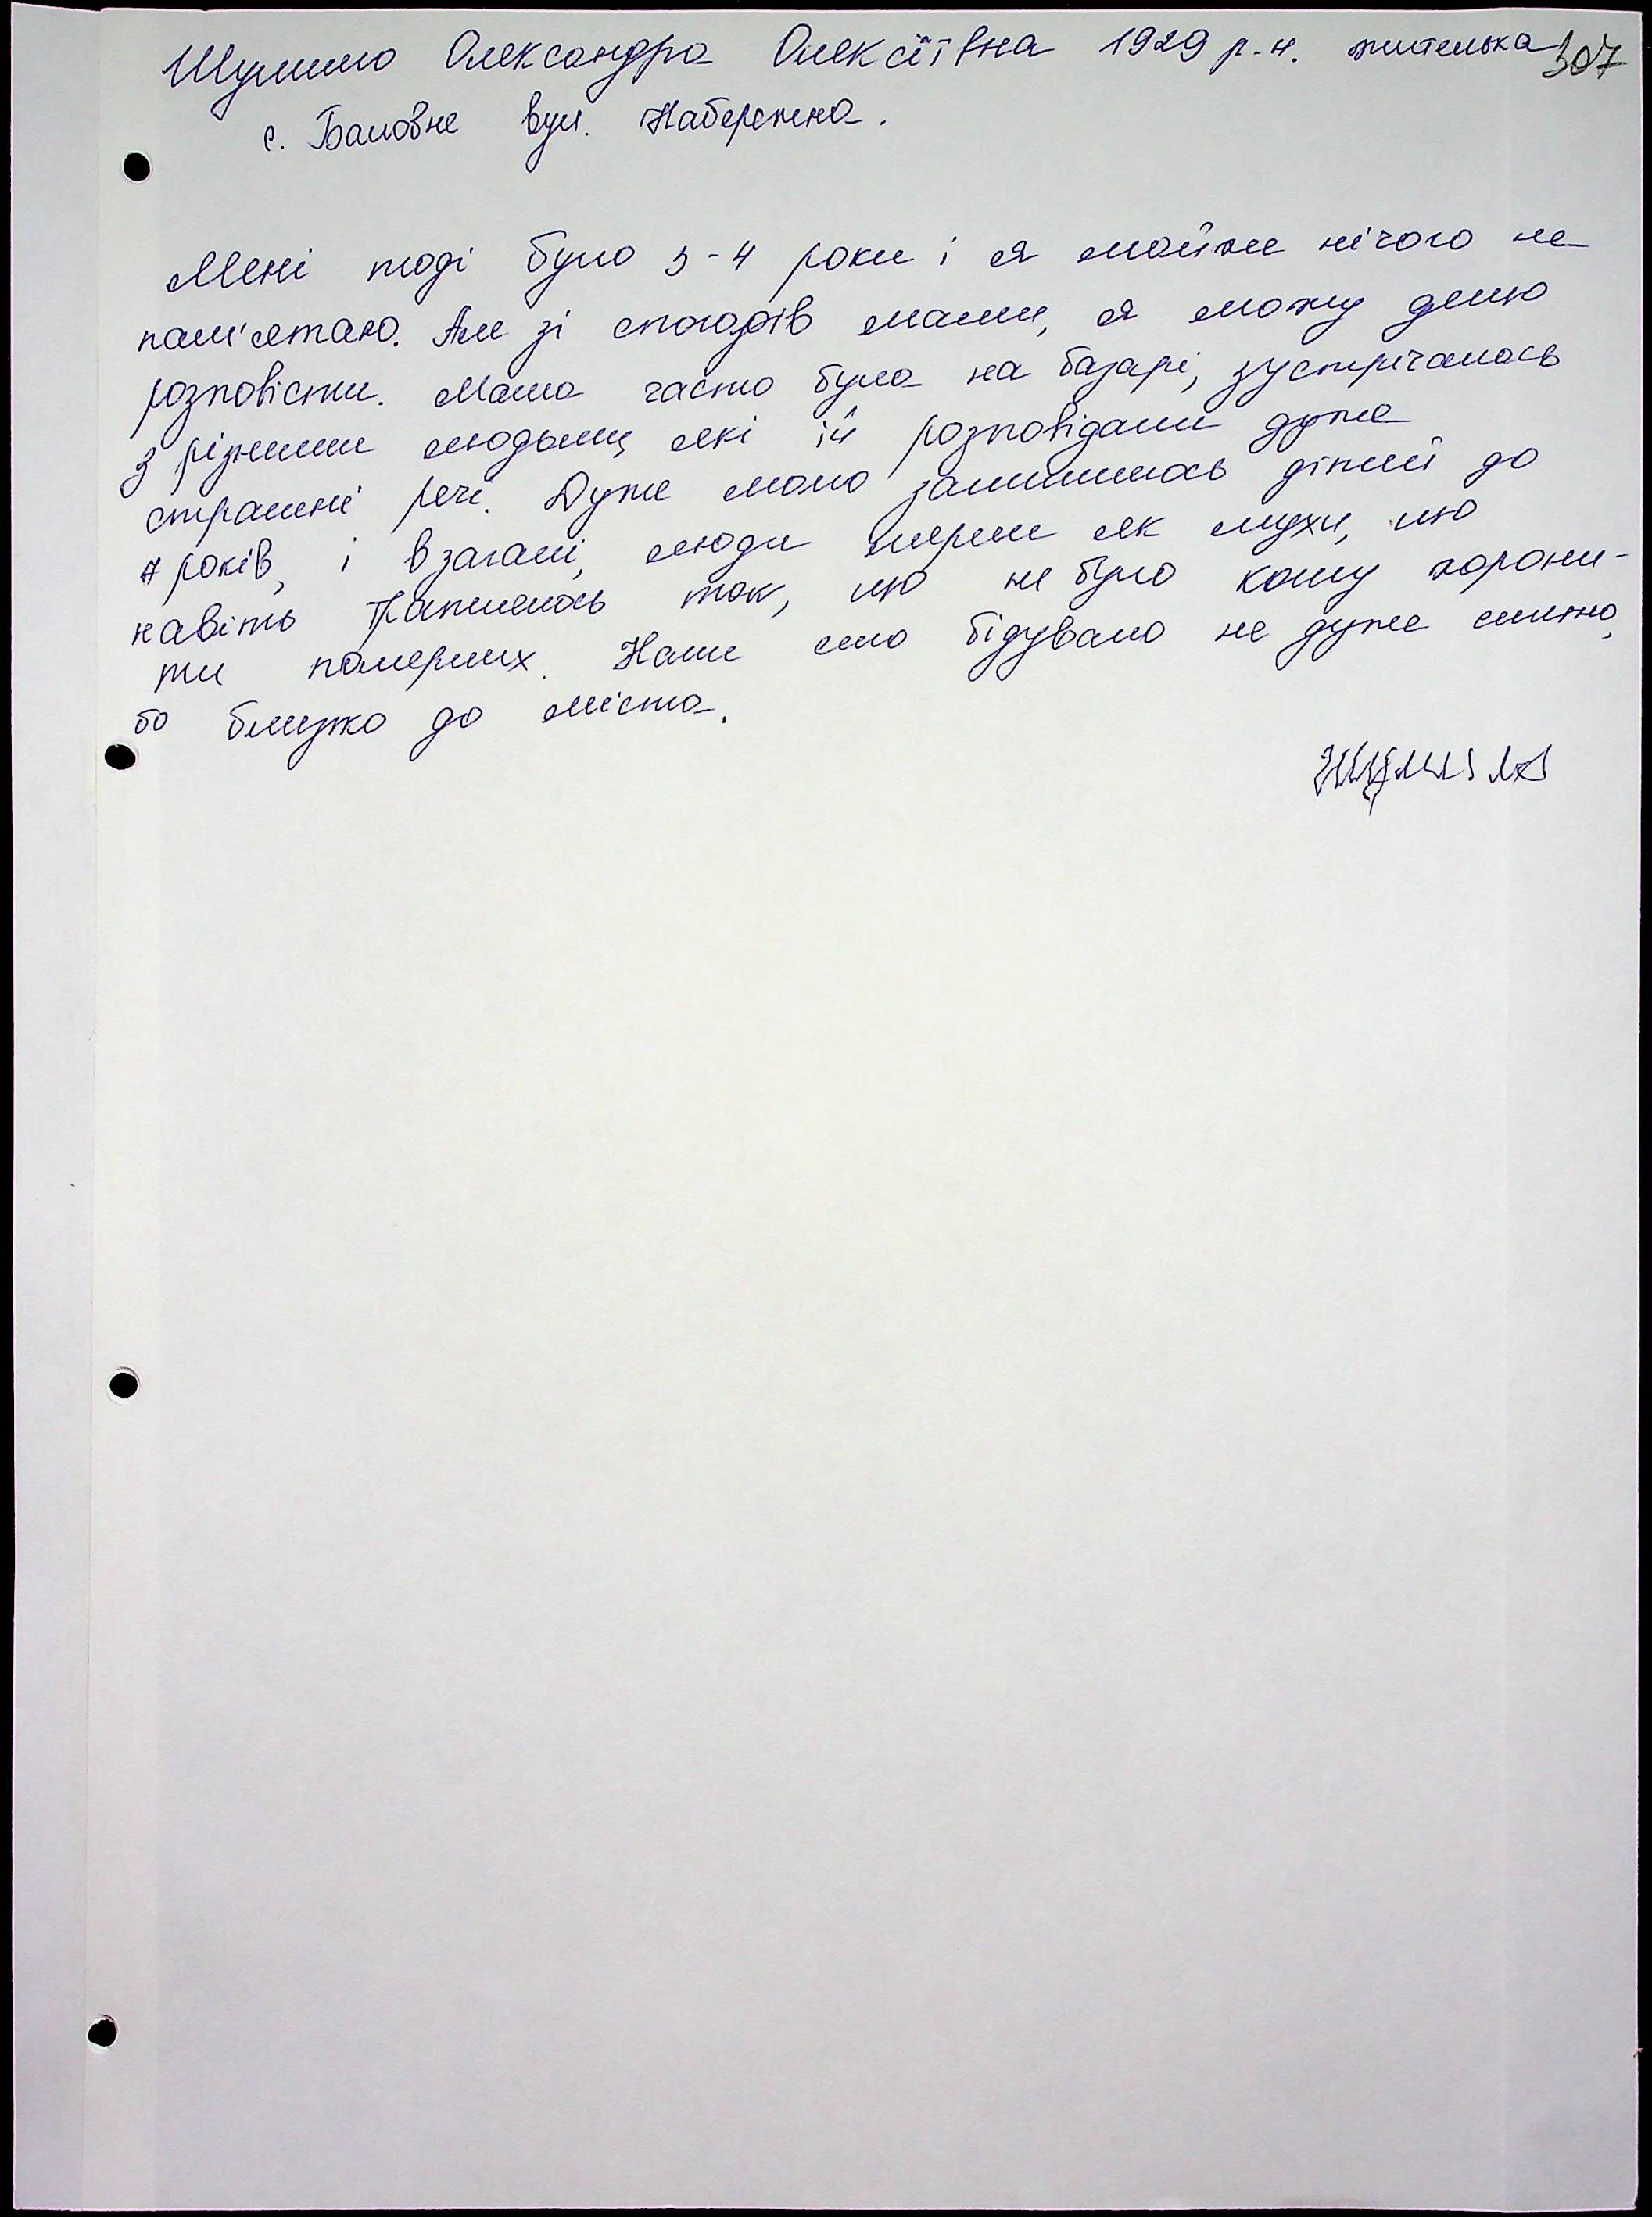 Шумило Олександра Олексіївна 1929 р.н. жителька 307
с. Баловне вул. Набережна.
Мені тоді було 3-4 роки і я майже нічого не
пам'ятаю. Але зі спогадів мами, я можу дещо
розповісти. Мама часто була на базарі, зустрічалась
з різними людьми, які їй розповідали дуже
страшні речі. Дуже мало залишилось дітей до
7 років, і взагалі, люди мерли як мухи, що
навіть траплялось так, що не було кому хорони-
ти померлих. Наше село бідувало не дуже сильно,
бо близько до міста.